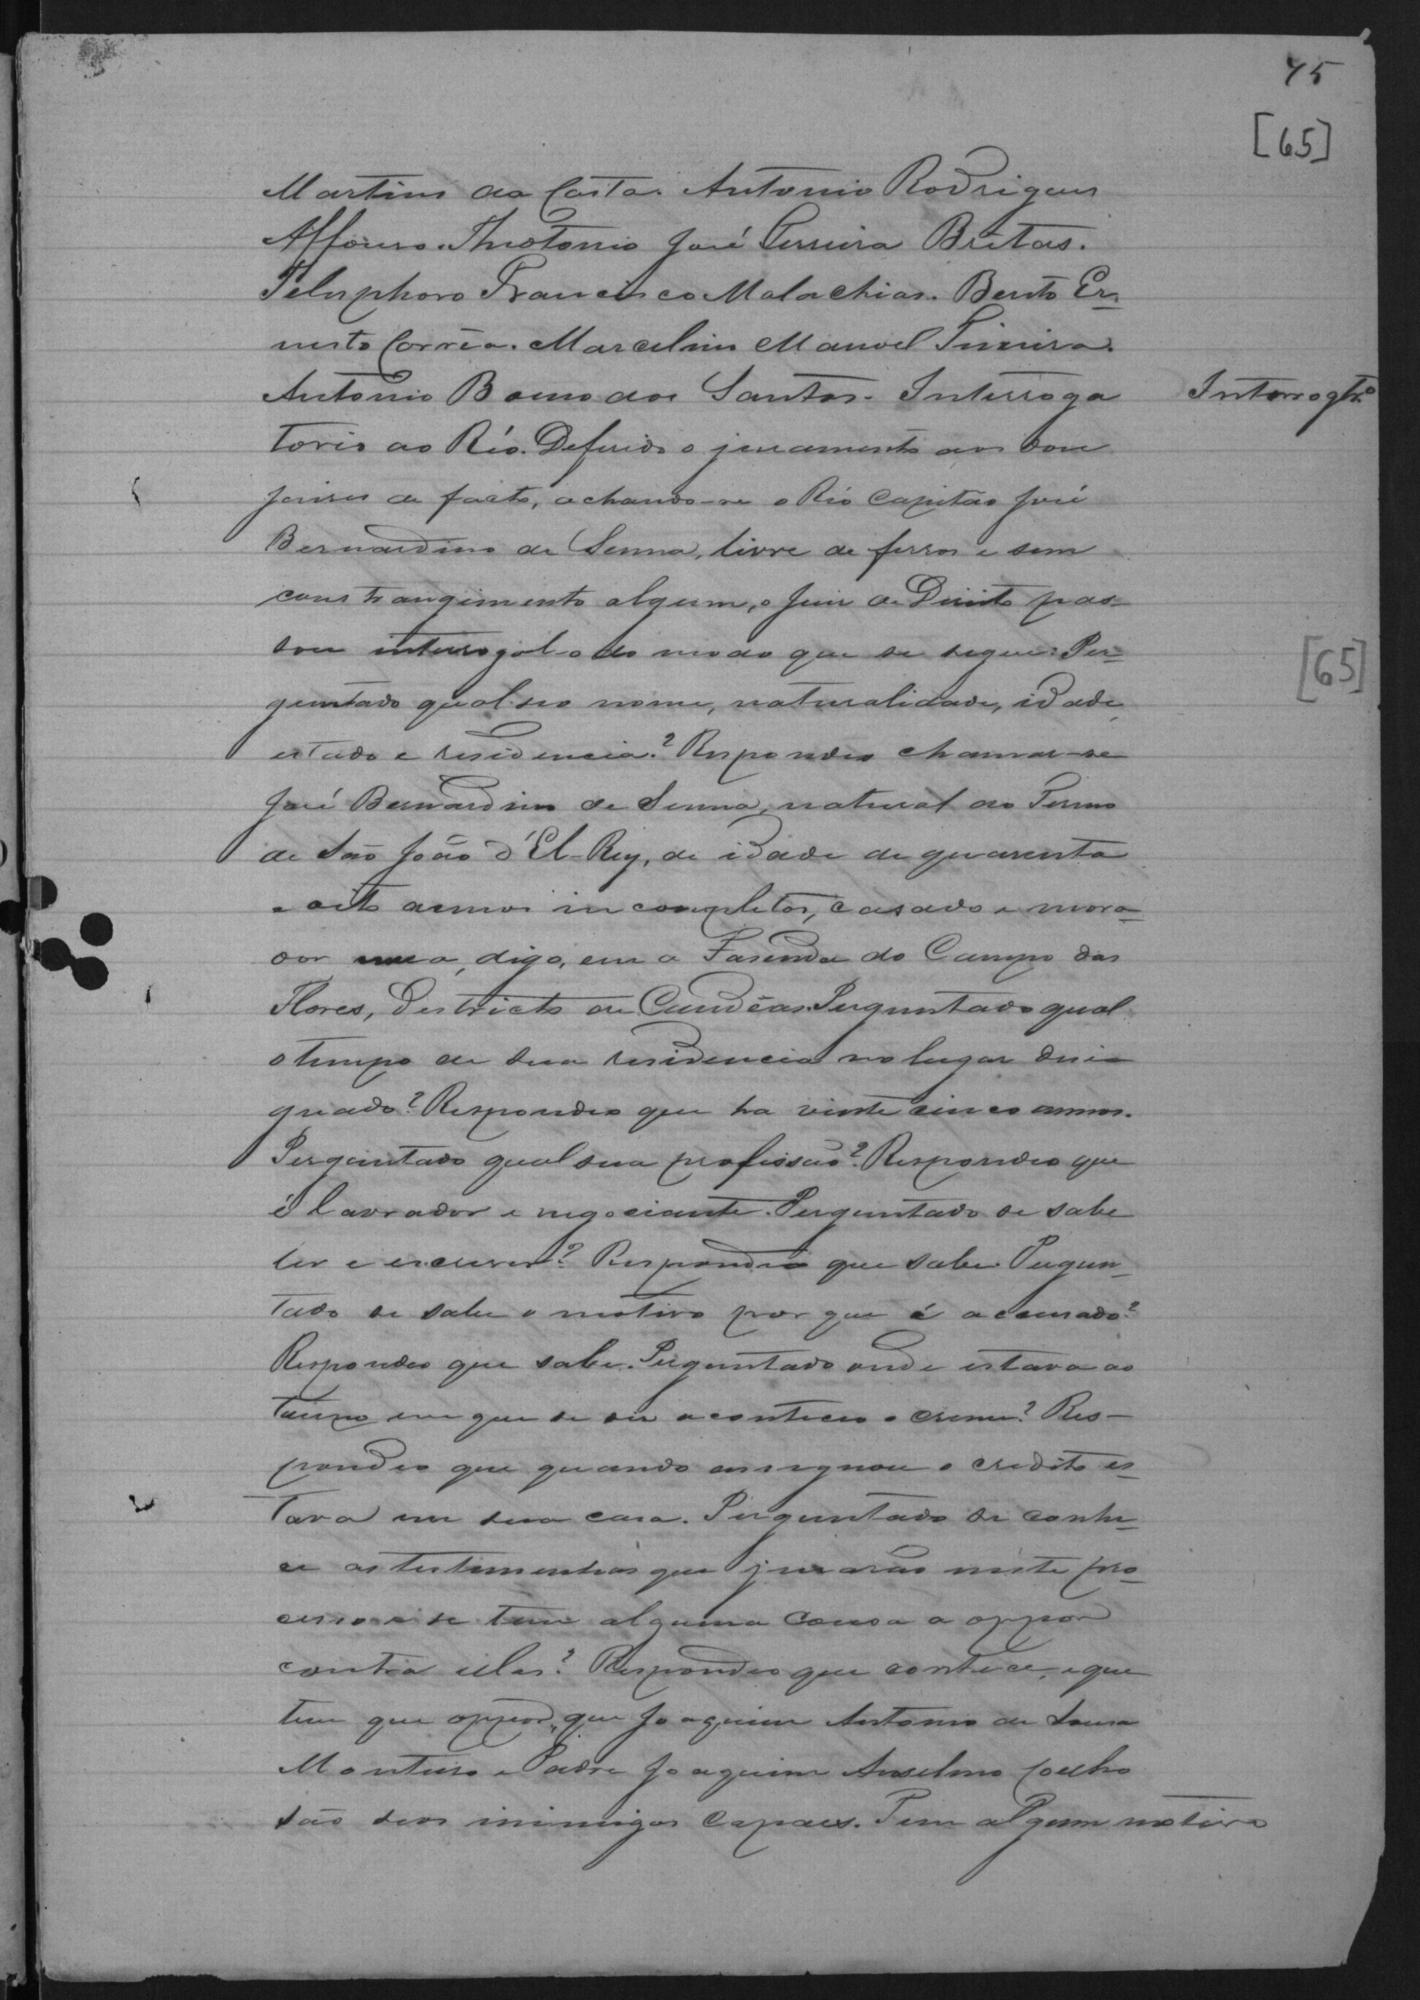 75
[65]
Martins da Costa. Antonio Rodrigues
Affonso. Theotonio José Pereira Britas.
Telesphoro Francisco Malachias. Bento Er-
nesto Corrêa. Marcelino Manoel Teixeira.
Antonio Bueno dos Santos. Interroga
Interrogtº
torio ao Réo. Deferido o juramento aos doze
juises de facto, achando-se o Réo Capitão José
Bernardino de Senna, livre de ferros e sem
constrangimento algum, o Juiz de Direito pas-
sou interrogal-o do modo que se segue: Per-
guntado qual seo nome, naturalidade, idade,
estado e residencia? Respondeo chamar-se
José Bernardino de Senna, natural do Termo
de São João d'El-Rey, de idade de quarenta
e oito annos incompletos, casado e mora-
dor na, digo, em a Fasenda do Campo das
Flores, Districto de Candêas. Perguntado qual
o tempo de sua residencia no lugar desi-
gnado? Respondeo que ha vinte cinco annos.
Perguntado qual sua profissão? Respondeo que
é lavrador e negociante. Perguntado se sabe
ler e escrever? Respondeo que sabe. Pergun-
tado se sabe o motivo por que é accusado?
Respondeo que sabe. Perguntado onde estava ao
tempo em que se diz aconteceo o crime? Res-
pondeo que quando assignou o credito es-
tava em sua casa. Perguntado se conhe-
ce as testemunhas que jurarão neste pro-
cesso e se tem alguma cousa a oppor
contra ellas? Respondeo que conhece, e que
tem que oppor, que Joaquim Antonio de Sousa
Monteiro e Padre Joaquim Anselmo Coelho
são seos inimigos capaes. Tem algum motivo
[65]